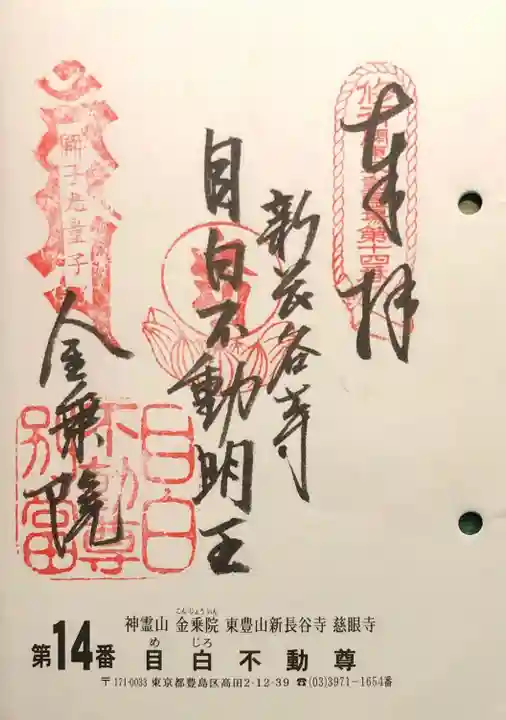 奉拝
新長谷寺
目白不動明王
金乗院
目白
不動尊
別当
神霊山 金乗院 東豊山新長谷寺 慈眼寺
こんじょういん
第14番 目白不動尊
めじろ
〒171-0033 東京都豊島区高田2-12-39 ☎(03)3971-1654番